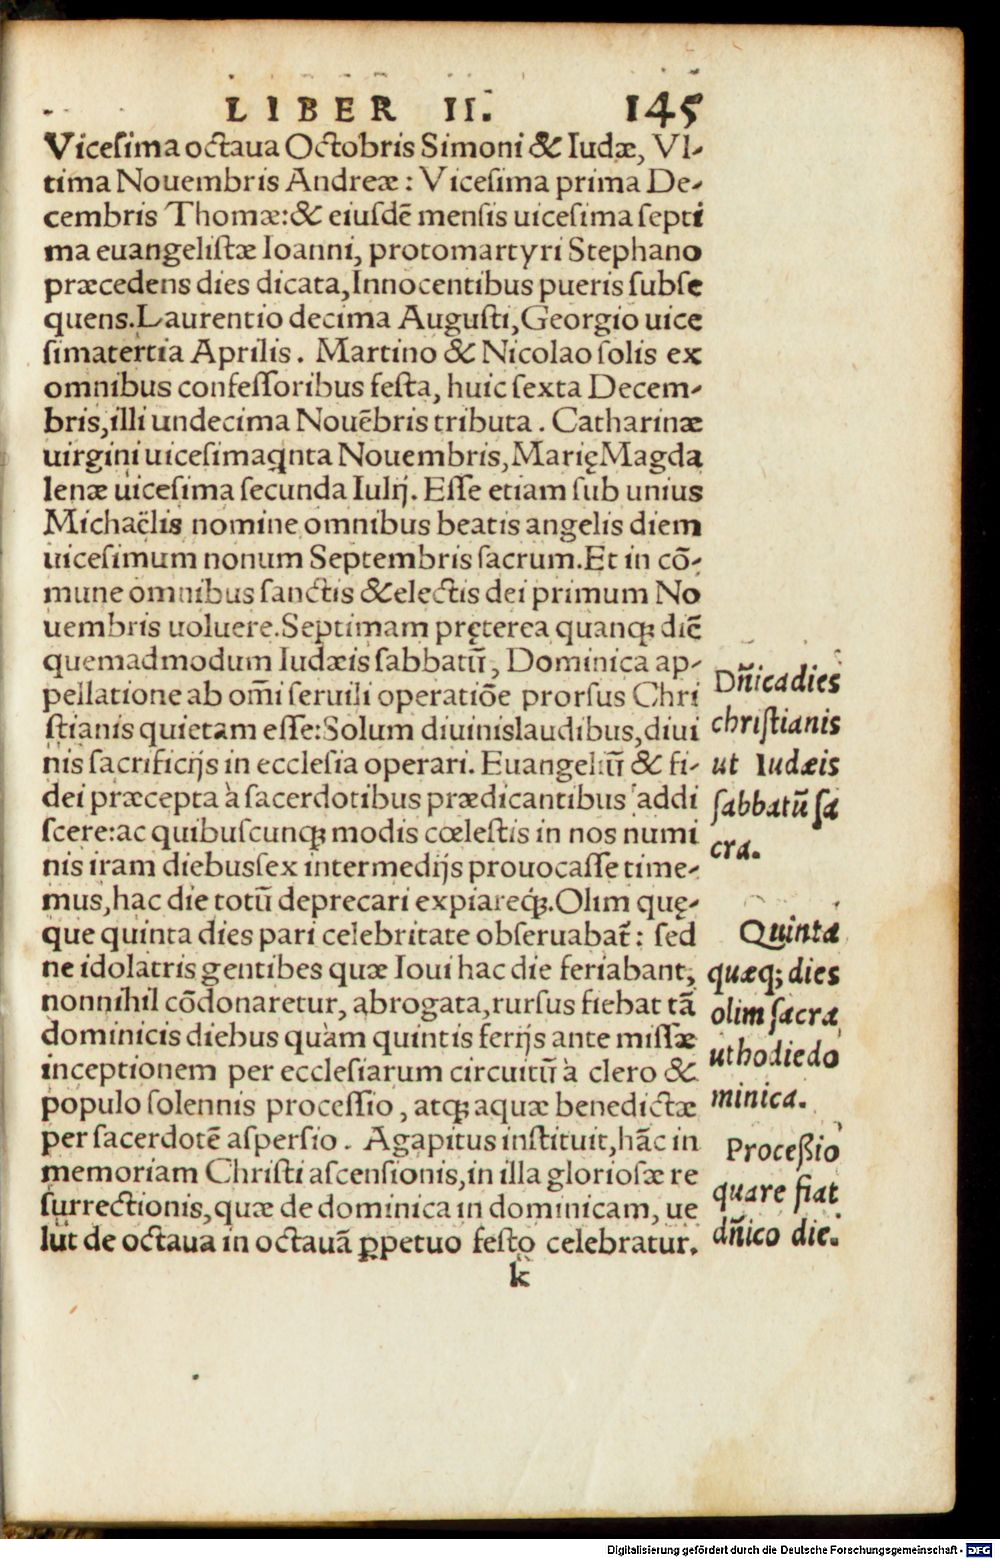 LIBER II. 145
Viceſima octaua Octobris Simoni & Iudæ, Vl-
tima Nouembris Andreæ: Viceſima prima De-
cembris Thomæ:& eiuſdē menſis uiceſima ſepti
ma euangeliſtæ Ioanni, protomartyri Stephano
præcedens dies dicata, Innocentibus pueris ſubſe
quens. Laurentio decima Auguſti, Georgio uice
ſimatertia Aprilis. Martino & Nicolao ſolis ex
omnibus confeſſoribus feſta, huic ſexta Decem-
bris, illi undecima Nouēbris tributa. Catharinæ
uirgini uiceſimaqnta Nouembris, Marię Magda
lenæ uiceſima ſecunda Iulij. Eſſe etiam ſub unius
Michaëlis nomine omnibus beatis angelis diem
uiceſimum nonum Septembris ſacrum. Et in cō-
mune omnibus ſanctis & electis dei primum No
uembris uoluere. Septimam pręterea quanqꝫ diē
quemadmodum Iudæis ſabbatū, Dominica ap-
pellatione ab om̄i ſeruili operatiōe prorſus Chri
ſtianis quietam eſſe: Solum diuinis laudibus, diui
nis ſacrificijs in eccleſia operari. Euangeliū & fi-
dei præcepta à ſacerdotibus prædicantibus addi
ſcere: ac quibuſcunqꝫ modis cœleſtis in nos numi
nis iram diebus ſex intermedijs prouocaſſe time-
mus, hac die totū deprecari expiareq́ꝫ. Olim quę-
que quinta dies pari celebritate obſeruabat̄: ſed
ne idolatris gentibes quæ Ioui hac die feriabant,
nonnihil cōdonaretur, abrogata, rurſus fiebat tā
dominicis diebus quàm quintis ferijs ante miſſæ
inceptionem per eccleſiarum circuitū à clero &
populo ſolennis proceſſio, atqꝫ aquæ benedictæ
per ſacerdotē aſperſio. Agapitus inſtituit, hāc in
memoriam Chriſti aſcenſionis, in illa glorioſæ re
ſurrectionis, quæ de dominica in dominicam, ue
lut de octaua in octauā ꝑpetuo feſto celebratur.
k
Dn̄ica dies
chriſtianis
ut Iudæis
ſabbatū ſa
cra.
Quinta
quæqꝫ dies
olim ſacra
ut hodie do
minica.
Proceßio
quare fiat
dn̄ico die.
Digitalisierung gefördert durch die Deutsche Forschungsgemeinschaft - DFG